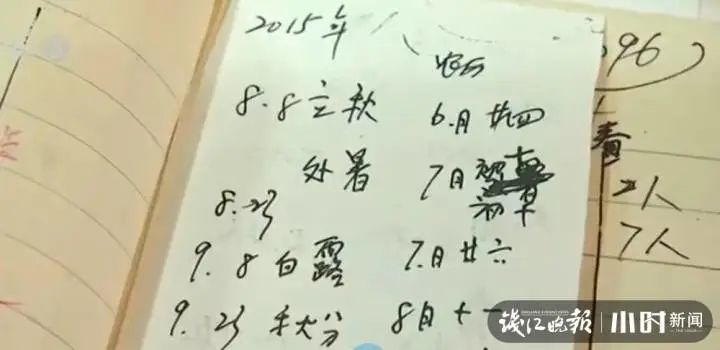 2015年
农历
8.8 立秋 6月廿四
处暑 7月
8.23 初十
9.8 白露 7月廿六
9.23 秋分 8月十一
96)
春
2人
7人
钱江晚报 小时新闻